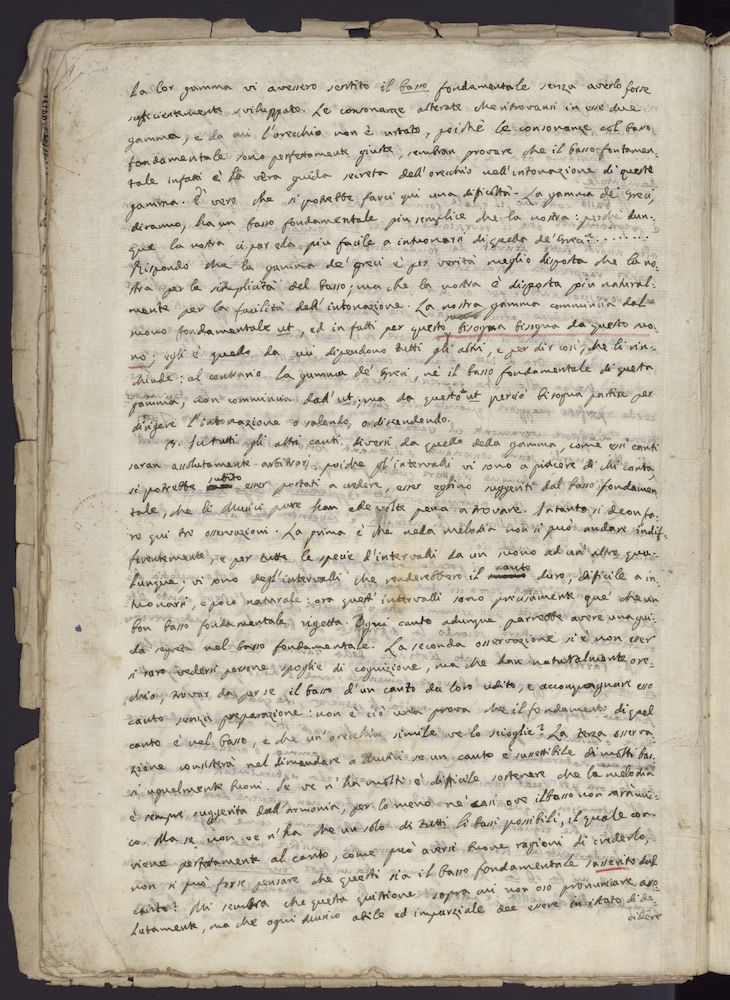 la lor gamma vi avessero sentito il basso fondamentale senza averlo forse
sufficientemente sviluppato. Le consonanze alterate che ritrovansi in esse due
gamma, e da cui l'orecchio non è urtato, poichè le consonanze col basso
fondamentale sono perfettamente giuste, sembran provare che il basso fontamen-
tale infatti è la vera guida secreta dell'orecchio nell'intonazione di queste
gamma. È vero che si potrebbe farci qui una dificoltà. La gamma de' Greci,
diranno, ha un basso fondamentale più semplice che la nostra: perchè dun-
que la nostra ci par ella più facile a intuonarsi di quella de' Greci? ........
Rispondo che la gamma de' greci è per verità meglio disposta che la no-
stra per la simplicità del basso; ma che la nostra è disposta più natural-
mente per la facilità dell'intonazione. La nostra gamma comincia dal
suono fondamentale ut, ed in fatti per questo bisogna bisogna da questo suo-
no; egli è quello da cui dipendono tutti gli altri, e per dir così, che li rin-
chiude: al contrario la gamma de' Greci, nè il basso fondamentale di questa
gamma, non comincia dall'ut; ma da questo ut perciò bisogna partire per
dirigere l'intonazione o salendo, o discendendo.
3. In tutti gli altri canti diversi da quello della gamma, come essi canti
saran assolutamente arbitrarj, poichè gl'intervalli vi sono a piacere di chi canta,
si potrebbe subito esser portati a credere, esser eglino suggeriti dal basso fondamen
tale, che li Musici pure han alle volte pena a trovare. Intanto si deon fa-
re qui tre osservazioni. La prima è che nella melodia non si può andare indif-
ferentemente, e per tutte le specie d'intervalli da un suono ad un altro qua-
lunque; vi sono degl'intervalli che renderebbero il canto duro, dificile a in-
tuonarsi, e poco naturale: ora questi intervalli sono precisamente que' che un
bon basso fondamentale rigetta. Ogni canto adunque parrebbe avere una gui-
da segreta nel basso fondamentale. La seconda osservazione si è non esser
sì raro vedersi persone spoglie di cognizione, ma che han naturalmente ore-
chio, trovar da per se il basso d'un canto da loro udito, e accompagnare esso
canto senza preparazione: non è ciò una prova che il fondamento di quel
canto è nel basso, e che un orecchio simile ve lo scioglie? La terza osserva
zione consisterà nel dimandare a' Musici se un canto è suscettibile di molti bas-
si ugualmente buoni. Se ve n'ha molti è dificile sostenere che la melodia
è sempre suggerita dall'armonia, per lo meno ne' casi ove il basso non sarà uni-
co. Ma se non ve n'ha che un solo di tutti li bassi possibili, il quale con-
viene perfettamente al canto, come può aversi buone ragioni di crederlo,
non si può forse pensare che questi sia il basso fondamentale asserito dal
canto? Mi sembra che questa quistione sopra cui non oso pronunciare asso-
lutamente, ma che ogni Musico abile ed imparziale dee essere in istato di de-
cidere